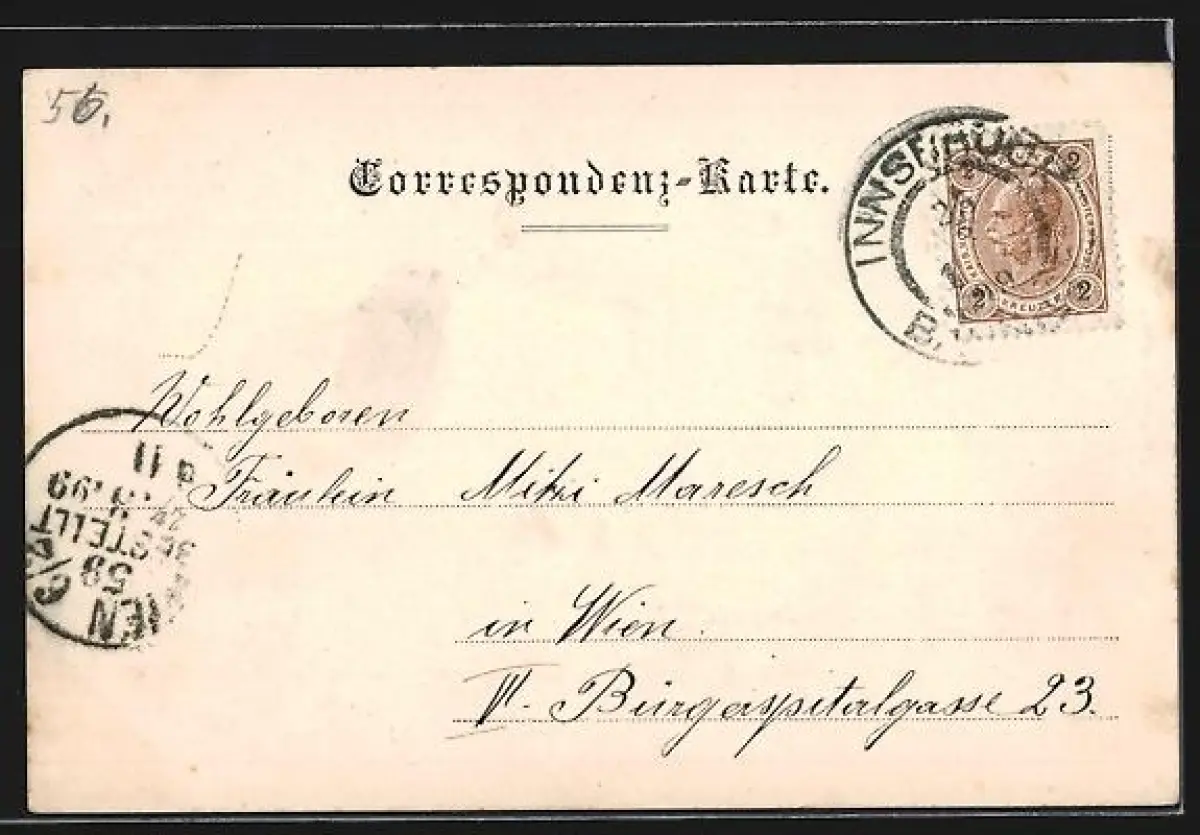 56.
Correspondenz-Karte.
INNSBRUCK
2 2
2 KREUZER 2
Wohlgeboren
Fräulein Mitzi Maresch
in Wien.
VI. Bürgerspitalgasse 23.
WIEN
59
BESTELLT
99
11